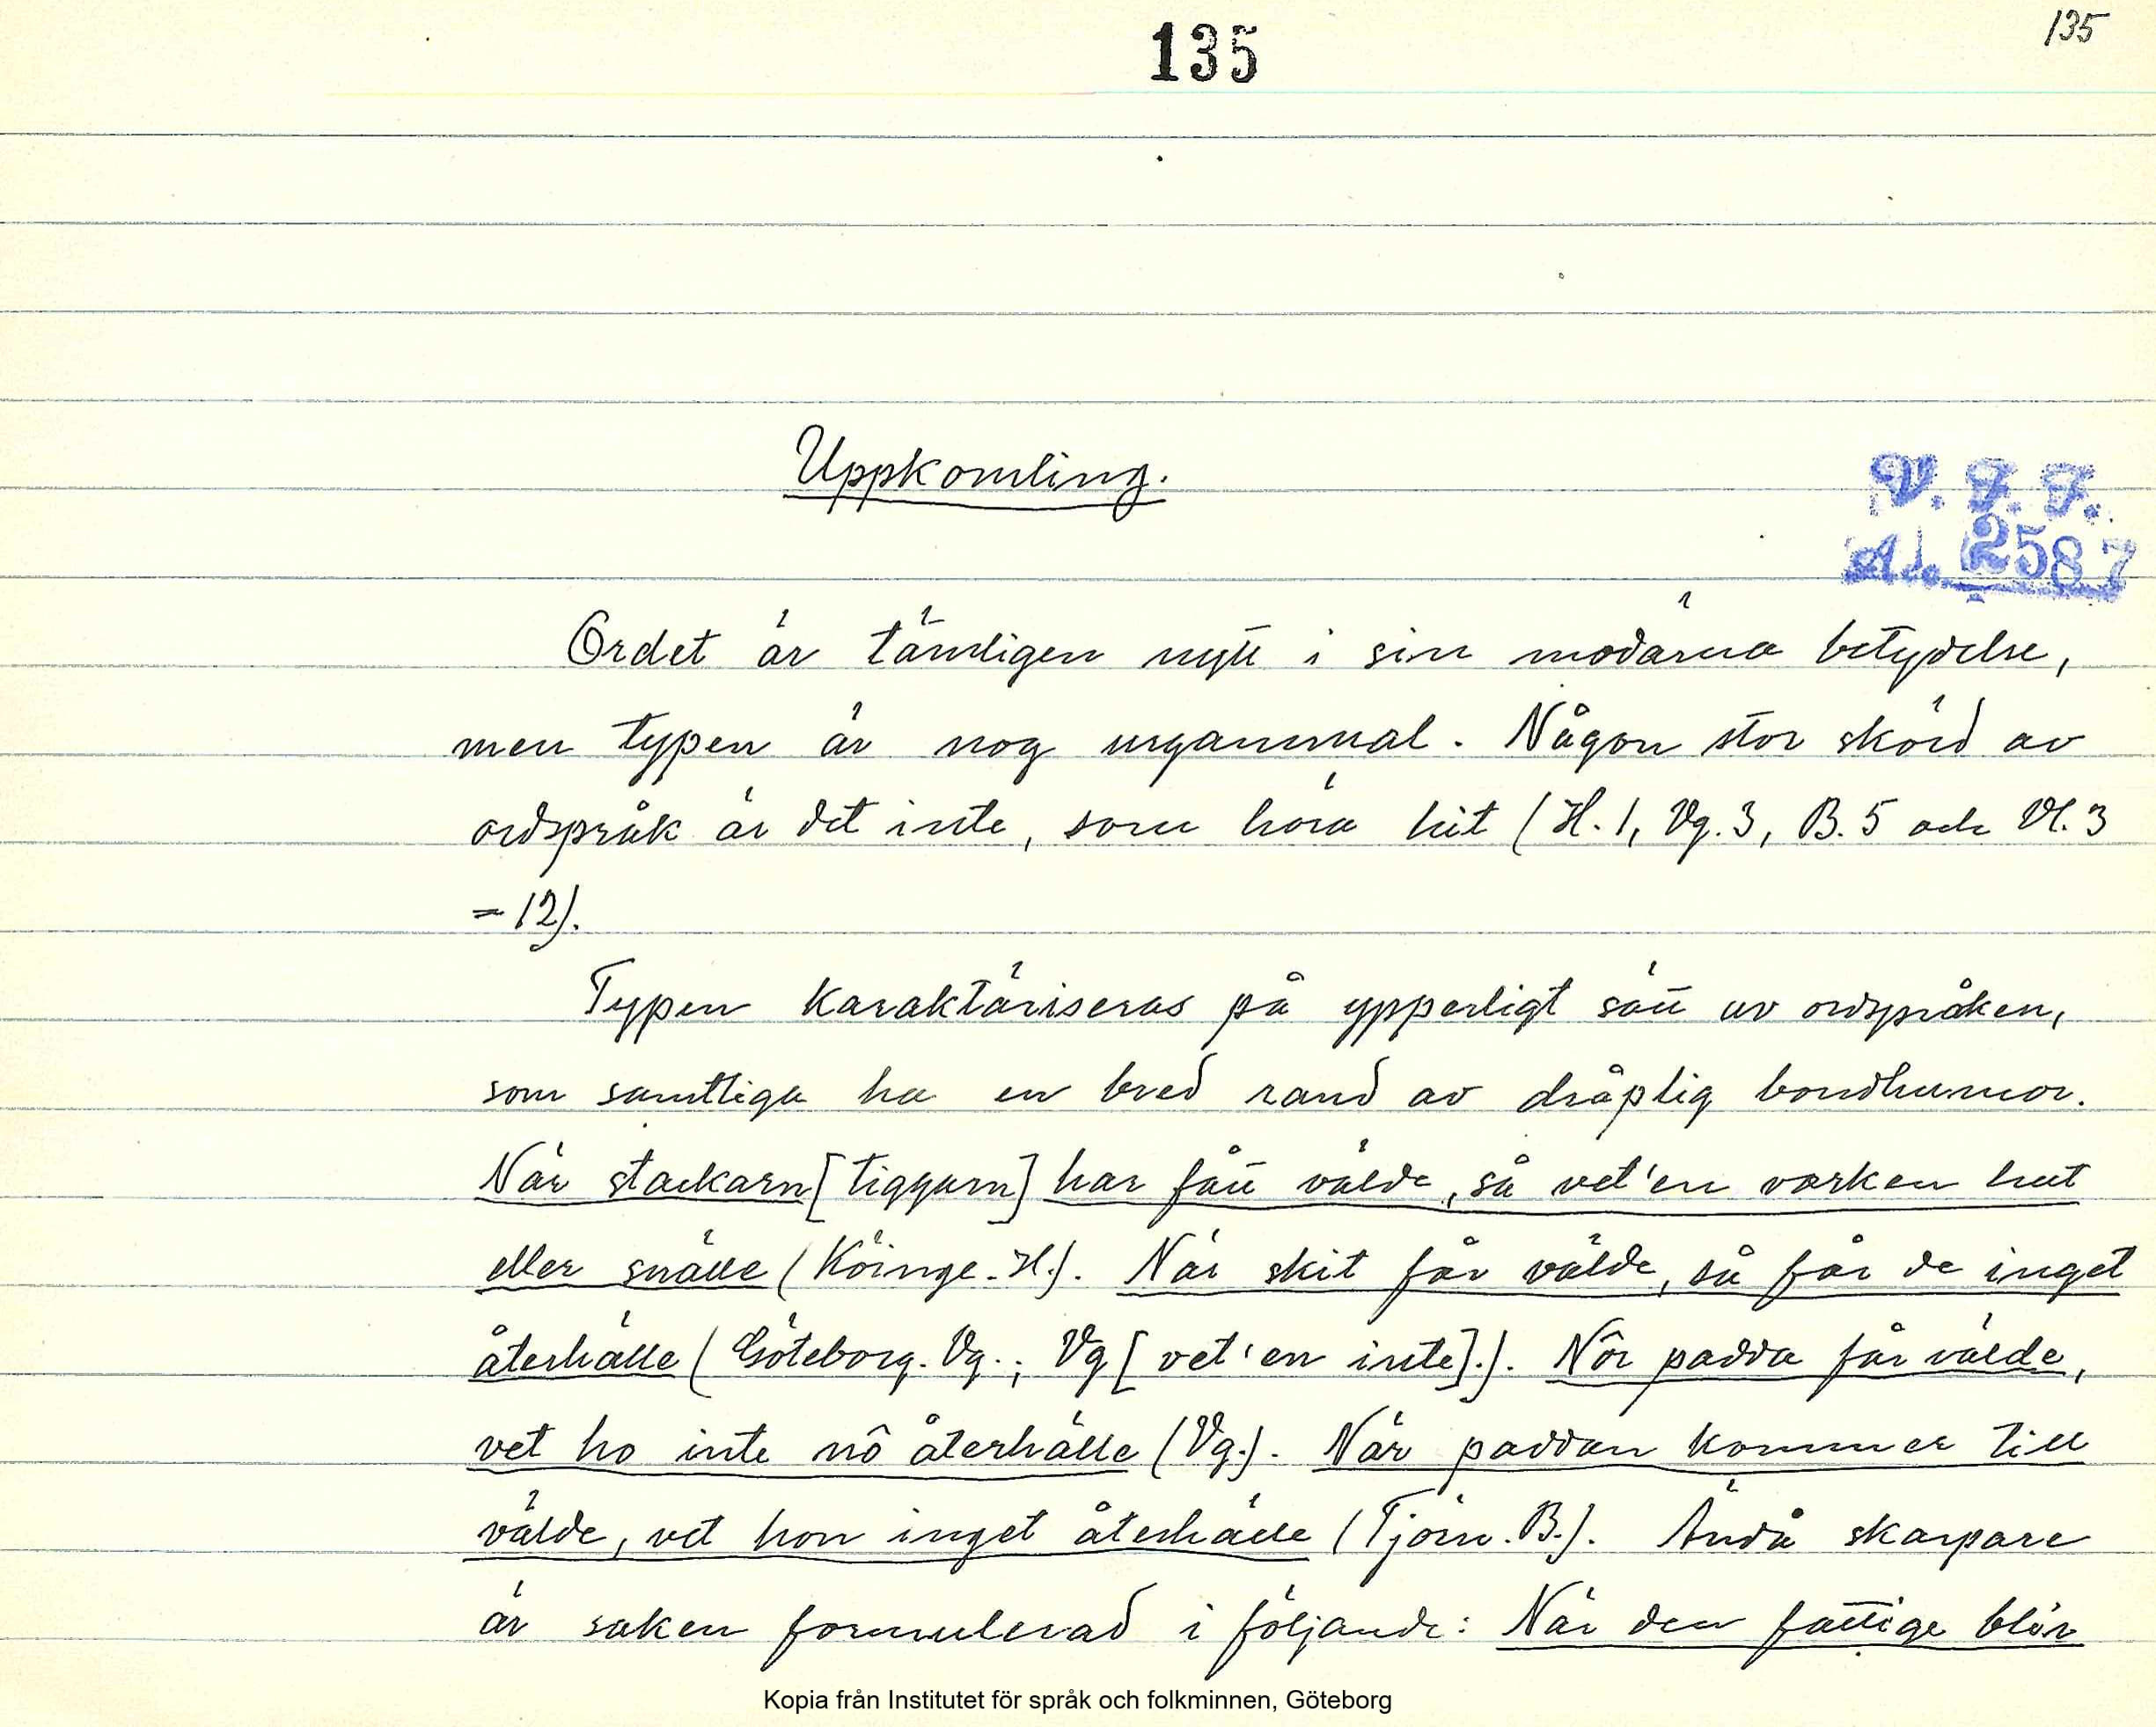 135
135
Uppkomling.
V. F. F.
Acc. 2587
Ordet är tämligen nytt i sin modärna betydelse,
men typen är nog urgammal. Någon stor skörd av
ordspråk är det inte, som höra hit (H. 1, Vg. 3, B. 5 och Vl. 3
= 12).
Typen karaktäriseras på ypperligt sätt av ordspråken,
som samtliga ha en bred rand av dråplig bondhumor.
När stackarn [tiggarn] har fått välde, så vet'en varken hut
eller snälle (Köinge. H.). När skit får välde, så får de inget
återhålle (Göteborg. Vg.; Vg [vet'en inte].). Nôr padda får välde,
vet ho inte nô återhälle (Vg.). När paddan kommer till
välde, vet hon inget återhälle (Tjörn. B.). Ändå skarpare
är saken formulerad i följande: När den fattige blir
Kopia från Institutet för språk och folkminnen, Göteborg